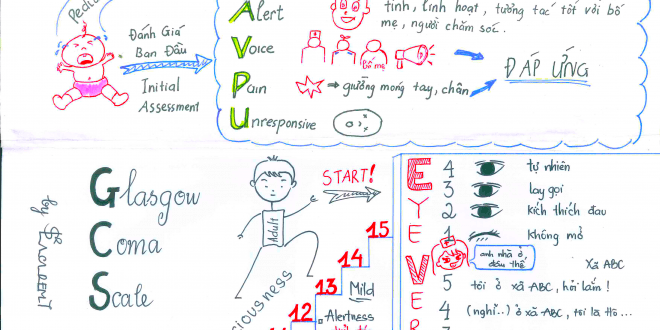 Pedi
Đánh Giá
Ban Đầu
Initial
Assessment
Alert
tỉnh, linh hoạt, tương tác tốt với bố
mẹ, người chăm sóc.
Voice
Bố mẹ
Pain
giường móng tay, chân
Unresponsive
ĐÁP ỨNG
Glasgow
Coma
Scale
by
Adult
START!
15
14
13
12
Mild
Alertness
ciousness
EYE
VER
4 tự nhiên
3 lay gọi
2 kích thích đau
1 không mở
anh nhà ở
đâu thế
Xã ABC
5 tôi ở xã ABC, hỏi lắm!
4 (nghĩ..) ở xã ABC, tôi là